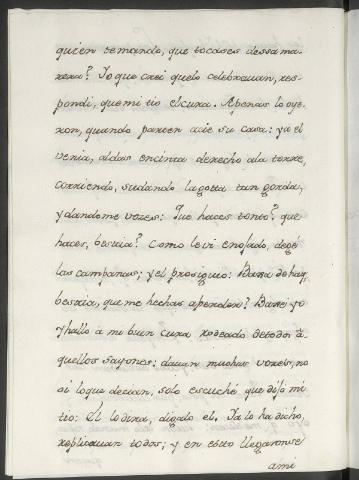 quien temando, que tocases dessa ma-
nera? Yo que crei quelo celebrauan, res-
pondi, que mi tio el cura. Apenas lo oye-
ron, quando parten acie su casa: ya el
venia, aldas encinta derecho ala torre,
corriendo, sudando la gota tan gorda,
y dandome vozes: Que haces tonto? que
haces, bestia? Como le vi enojado, dexé
las campanas; y el prosiguio: Baxa de hay,
bestia, que me hechas aperder? Baxé yo
y hallo à mi buen cura rodeado detodos à-
quellos sayones: dauan muchas vozes, no
oi loque decian, solo escuche que dijo mi
tio: El lo dira, digalo el. Ya lo ha dicho,
replicauan todos; y en esto llegaronse
ami